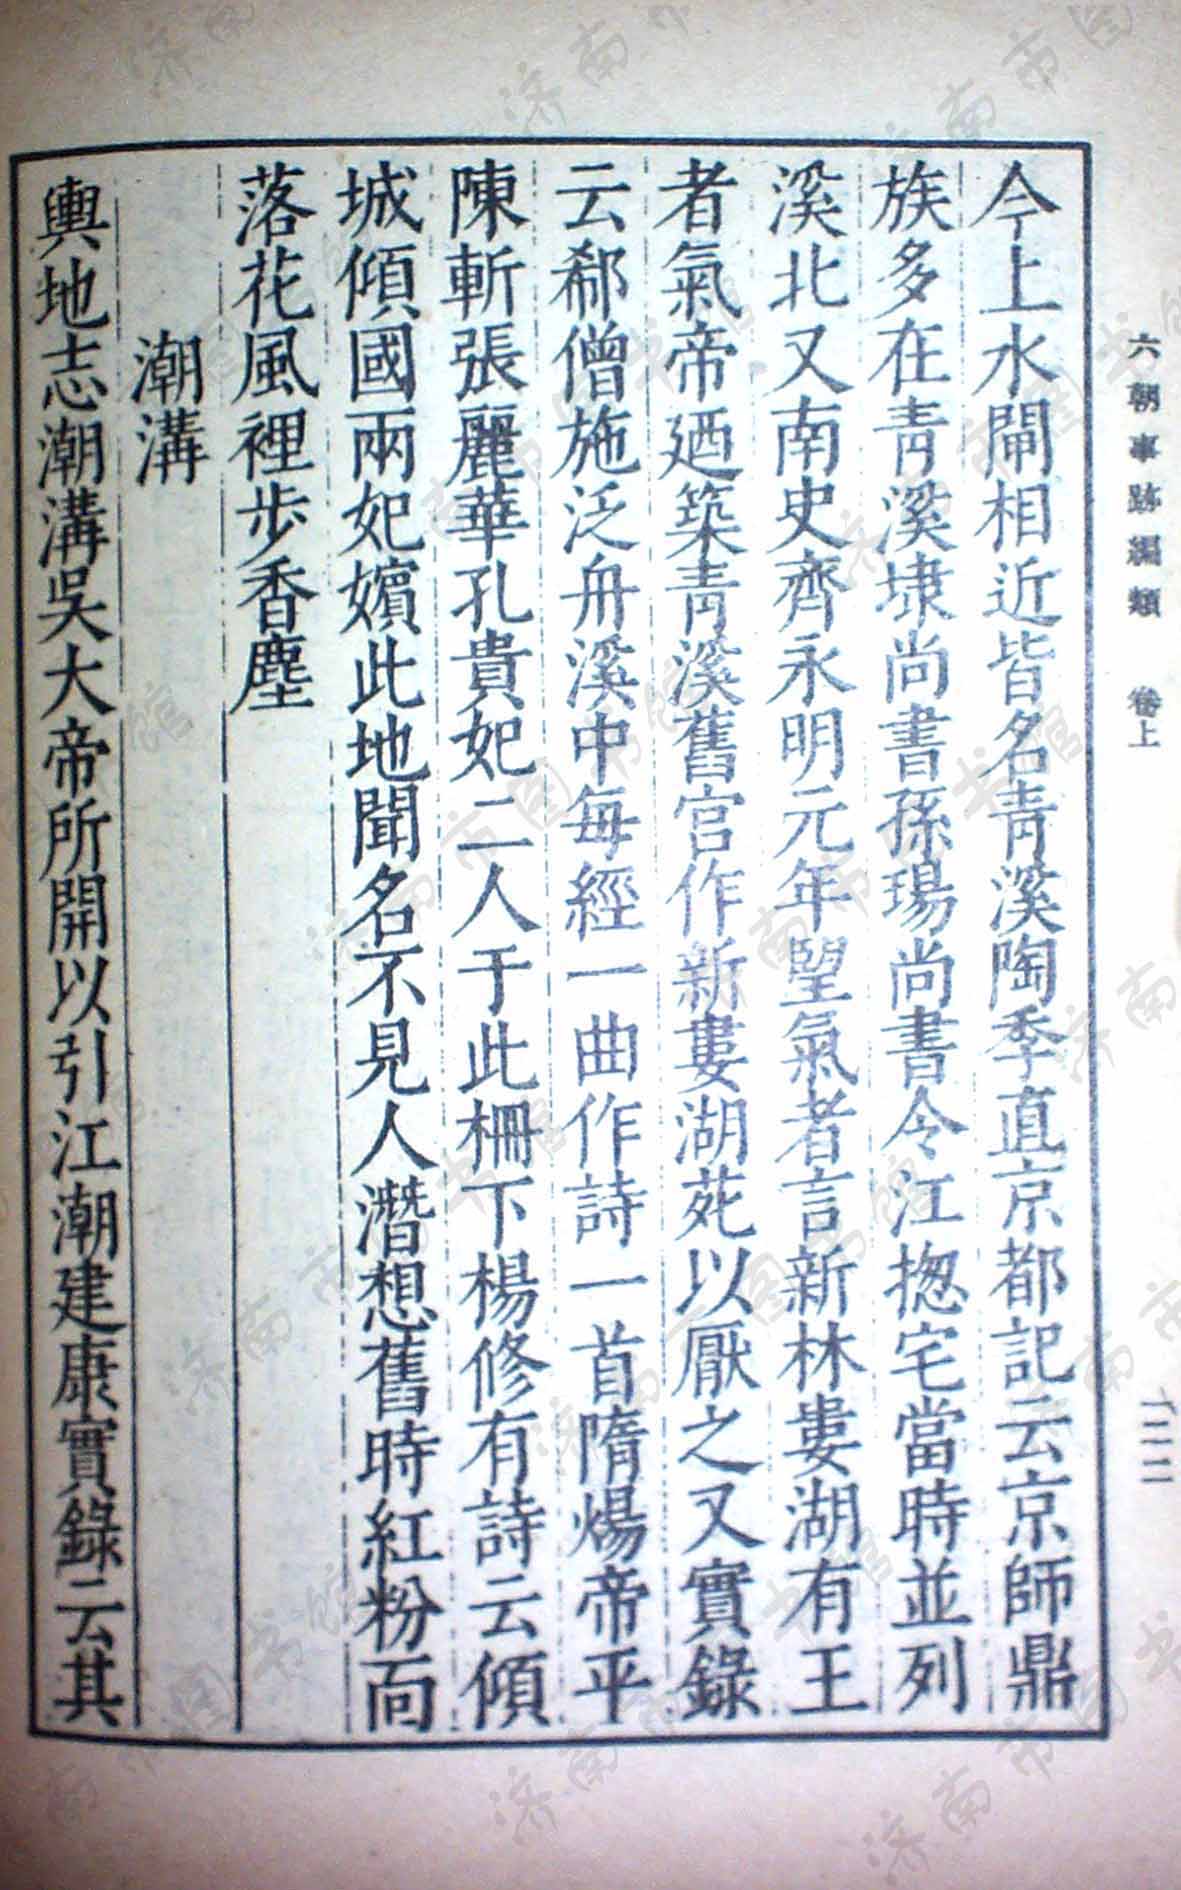 六朝事跡編類 卷上 一二二
今上水閘相近皆名青溪陶季直京都記云京師鼎
族多在青溪埭尚書孫瑒尚書令江揔宅當時並列
溪北又南史齊永明元年望氣者言新林婁湖有王
者氣帝廼築青溪舊宮作新婁湖苑以厭之又實錄
云郗僧施泛舟溪中每經一曲作詩一首隋煬帝平
陳斬張麗華孔貴妃二人于此柵下楊修有詩云傾
城傾國兩妃嬪此地聞名不見人潛想舊時紅粉面
落花風裡步香塵
潮溝
輿地志潮溝吳大帝所開以引江潮建康實錄云其
济南市图书馆